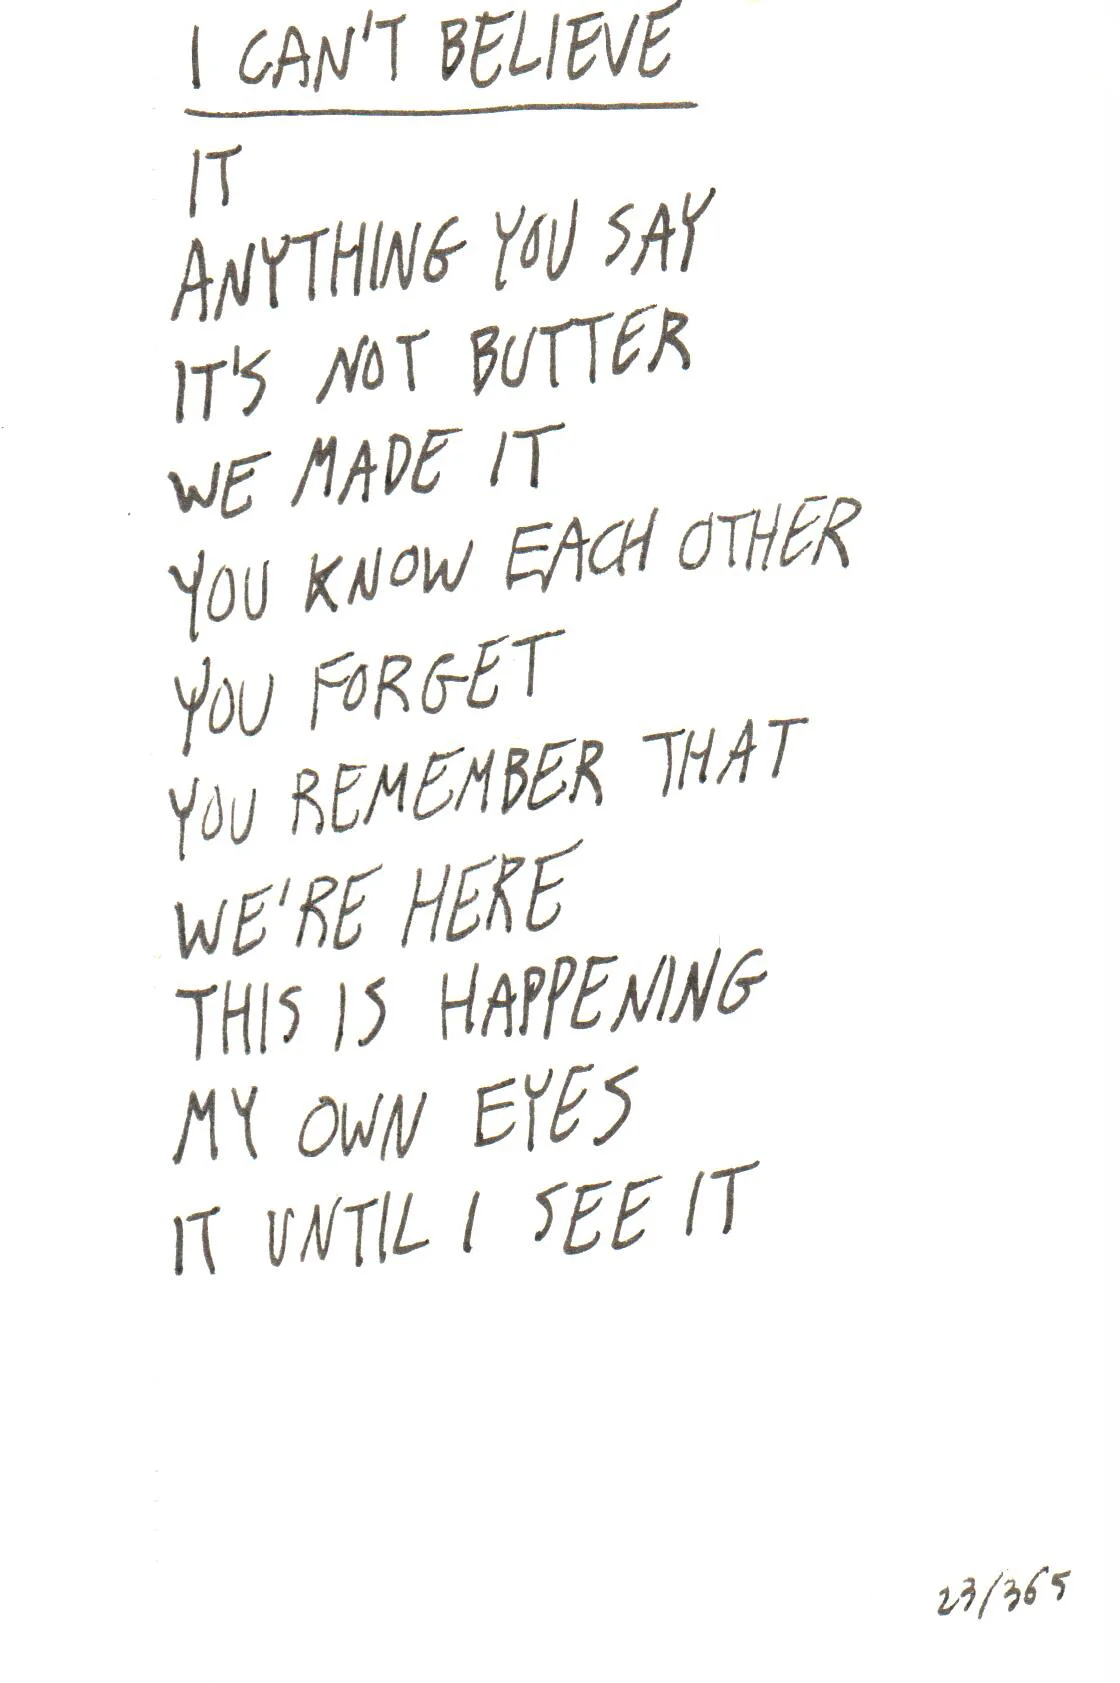 I CAN'T BELIEVE
IT
ANYTHING YOU SAY
IT'S NOT BUTTER
WE MADE IT
YOU KNOW EACH OTHER
YOU FORGET
YOU REMEMBER THAT
WE'RE HERE
THIS IS HAPPENING
MY OWN EYES
IT UNTIL I SEE IT
23/365